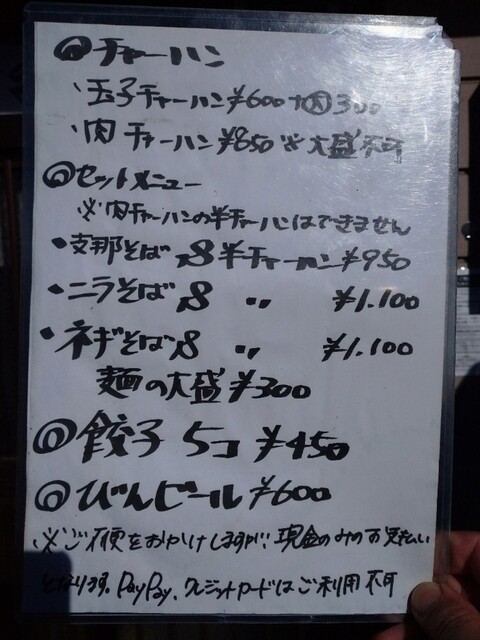 ◎チャーハン
・玉子チャーハン¥600 大300
・肉チャーハン¥850 ※大盛不可
◎セットメニュー
※肉チャーハンの半チャーハンはできません
・支那そば&半チャーハン¥950
・ニラそば&〃 ¥1.100
・ネギそば&〃 ¥1.100
麺の大盛¥300
◎餃子 5コ ¥450
◎びんビール¥600
※ご不便をおかけしますが、現金のみのお支払い
となります。PayPay、クレジットカードはご利用不可